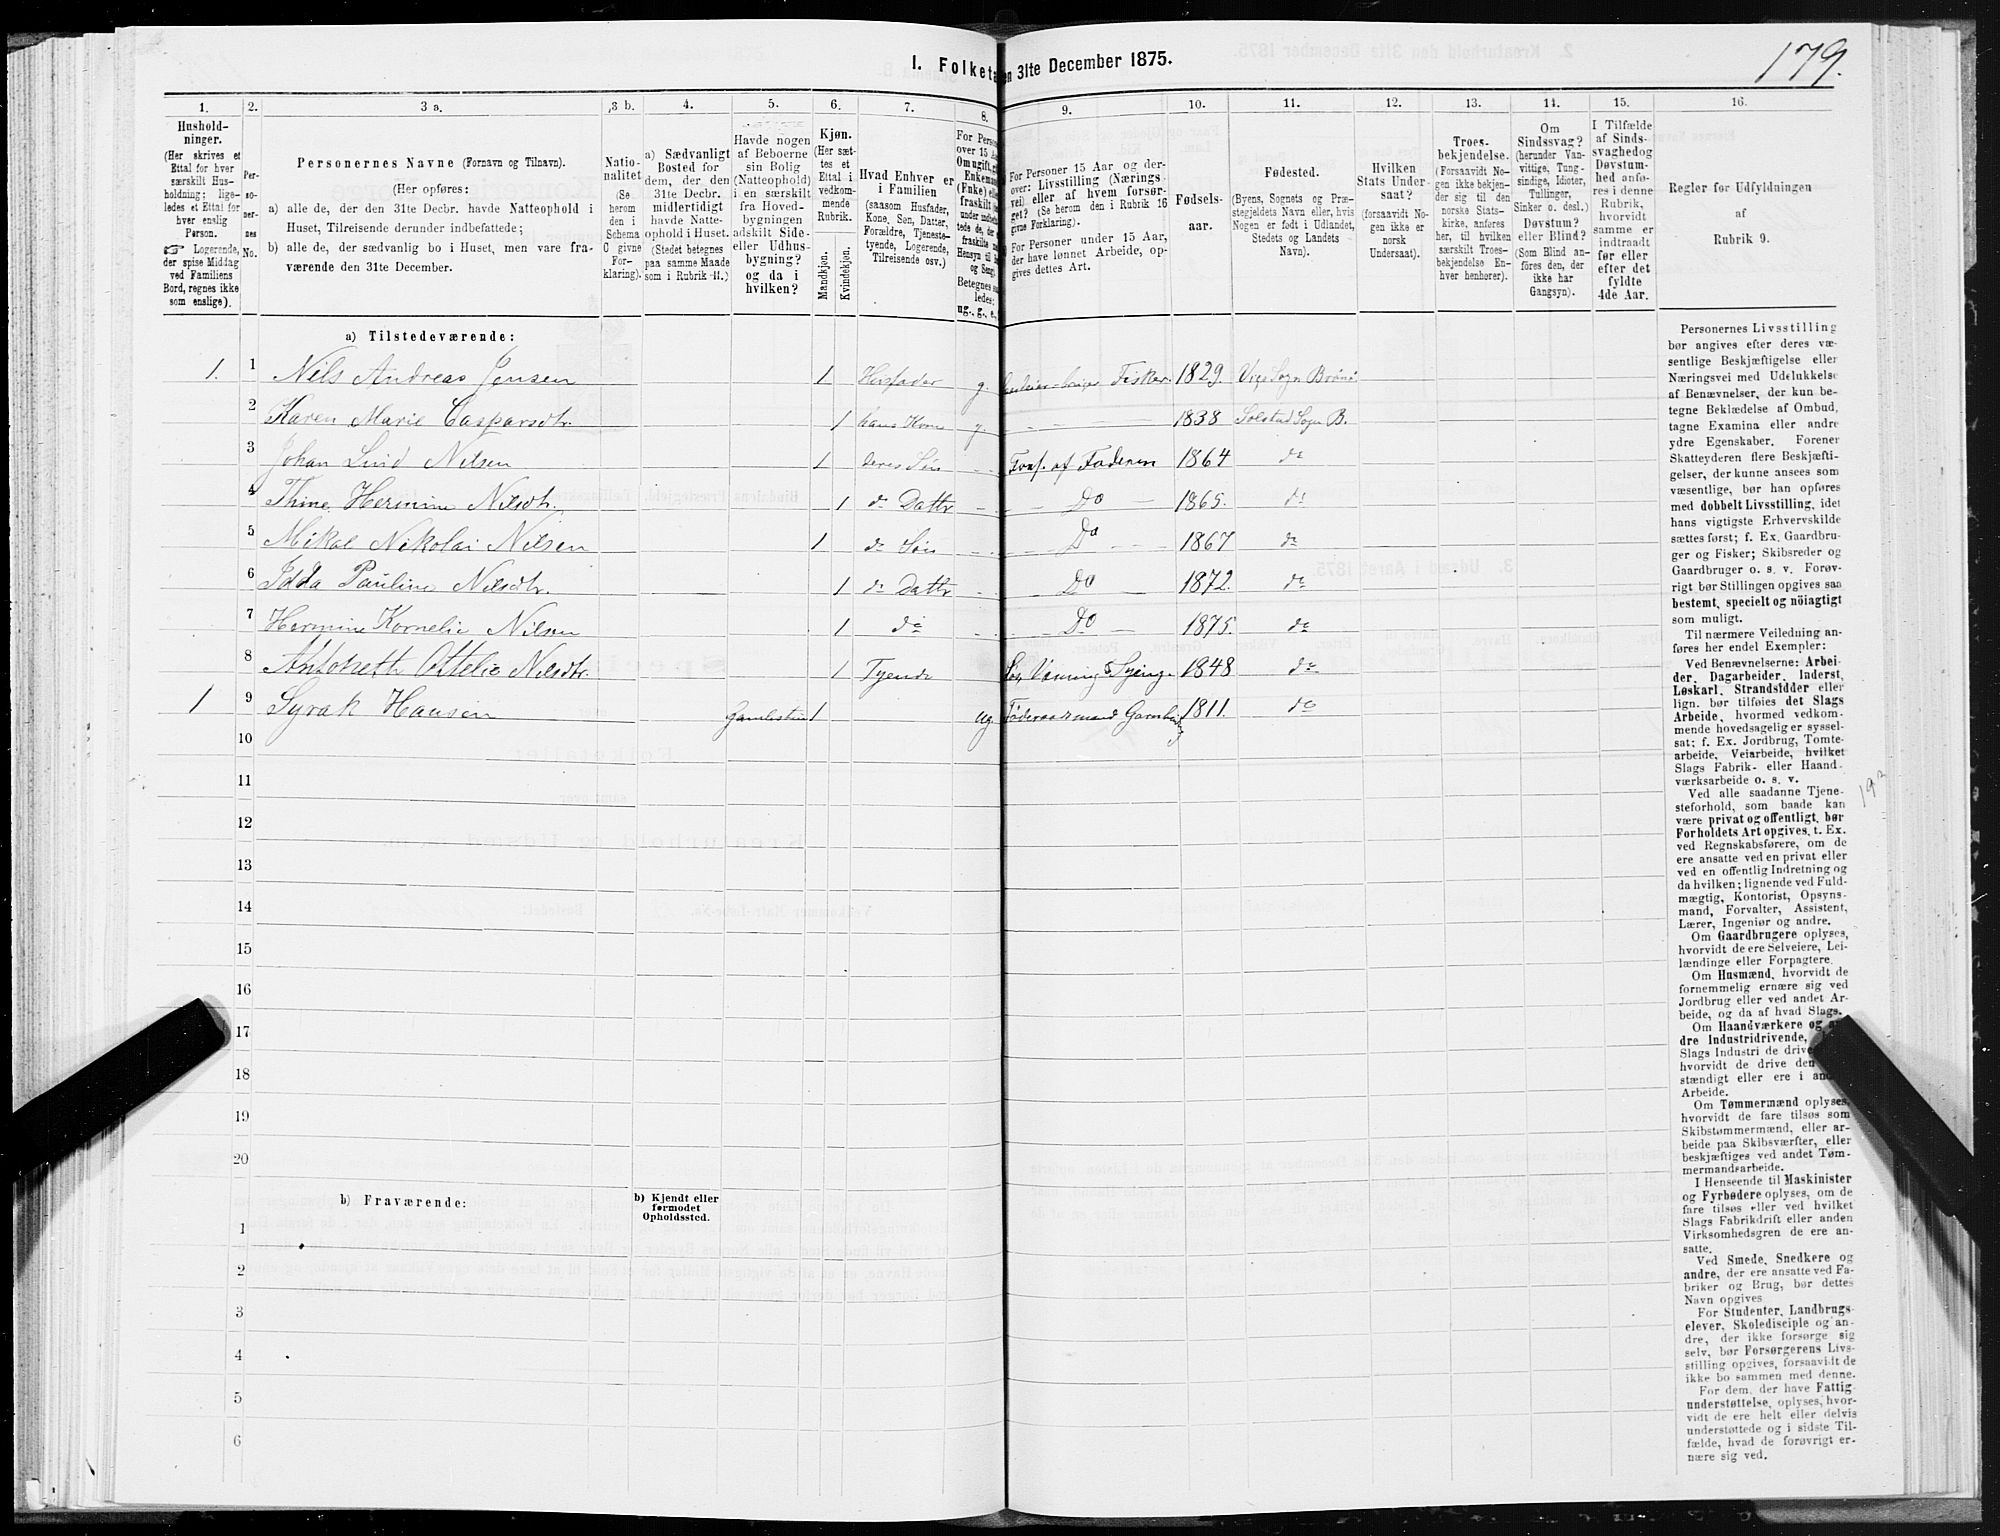 179.
I. Folketa en 31te December 1875.
1. 2. 3 a. 3 b. 4. 5. 6. 7. 8. 9. 10. 11. 12. 13. 14. 15. 16.
Hushold-
ninger.
(Her skrives et
Ettal for hver
særskilt Hus-
holdning; lige-
ledes et Ettal for
hver enslig
Person.
☞ Logerende,
der spise Middag
ved Familiens
Bord, regnes ikke
som enslige).
Per-
so-
ner-
nes
No.
Personernes Navne (Fornavn og Tilnavn).
(Her opføres:
a) alle de, der den 31te Decbr. havde Natteophold i
Huset, Tilreisende derunder indbefattede;
b) alle de, der sædvanlig bo i Huset, men vare fra-
værende den 31te December.
Natio-
nalitet
(Se
herom
den i
Schema
C givne
For-
klaring).
a) Sædvanligt
Bosted for
dem, der den
31te Decbr.
midlertidigt
havde Natte-
ophold i Huset.
(Stedet betegnes
paa samme Maade
som i Rubrik 11.)
Havde nogen
af Beboerne
sin Bolig
(Natteophold)
i en særskilt
fra Hoved-
bygningen
adskilt Side-
eller Udhus-
bygning?
og da i
hvilken?
Kjøn.
(Her sæt-
tes et
Ettal i
vedkom-
mende
Rubrik.
Mandkjøn.
Kvindekjøn.
Hvad Enhver er
i Familien
(saasom Husfader,
Kone, Søn, Datter,
Forældre, Tjeneste-
tyende, Logerende,
Tilreisende osv.)
For Perso
over 15 Aa
Om ugift,
Enkeman
(Fnke) ell
fraskilt
under indbe
tede de, de
fraskilte
Hensyn til
og Seng).
Betegnes saa
ledes:
ug., g., e.,
For Personer 15 Aar og der-
over: Livsstilling (Nærings
vei) eller af hvem forsør-
get? (Se herom den i Rubrik 16
givne Forklaring).
For Personer under 15 Aar,
der have lønnet Arbeide, op-
gives dettes Art.
Fødsels-
aar.
Fødested.
(Byens, Sognets og Præ-
stegjeldets Navn eller, hvis
Nogen er født i Udlandet,
Stedets og Landets
Navn).
Hvilken
Stats Under-
saat?
(forsaavidt No-
gen ikke er
norsk
Undersaat).
Troes-
bekjendelse.
(Forsaavidt No-
gen ikke bekjen-
der sig til den
norske Stats-
kirke, anføres
her, til hvilken
særskilt Troes-
bekjendelse En-
hver henhører).
Om
Sindssvag?
(herunder Van-
vittige, Tung-
sindige, Idioter,
Tullinger,
Sinker o. desl.)
Døvstum?
eller Blind?
(Som Blind an-
føres den, der
ikke har
Gangsyn).
I Tilfælde
af Sinds-
svaghed og
Døvstum-
hed anfø-
res i denne
Rubrik,
hvorvidt
samme er
indtraadt
før eller
efter det
fyldte
4de Aar.
Regler for Udfyldningen
af
Rubrik 9.
a) Tilstedeværende:
1. 1 Nils Andreas Jensen 1 Husfader g. Fisker. 1829. Vigs Sogn Brønø
2 Karen Marie Caspersdtr. 1 hans Kone g. 1838 Solstad Sogn B.
3 Johan Lind Nilsen 1 deres Søn Fors. af Faderen 1864 do
4 Thine Hermine Nilsdtr. 1 do Dattr Do 1865. do
5 Mikal Nikolai Nilsen 1 do Søn Do 1867 do
6 Idda Pauline Nilsdtr. 1 do Dattr Do 1872. do
7 Hermine Kornelie Nilsen 1 do Do 1875. do
8 Antonett Ottelie Nilsdtr. 1 Tyende 1848 do
1 9 Syrak Hansen 1 ug Føderaadsmand 1811. do
10
11
12
13
14
15
16
17
18
19
20
b) Fraværende:
b) Kjendt eller
formodet
Opholdssted.
1
2
3
4
5
6
Personernes Livsstilling
bør angives efter deres væ-
sentlige Beskjæftigelse eller
Næringsvei med Udelukkelse
af Benævnelser, der kun be-
tegne Beklædelse af Ombud,
tagne Examina eller andre
ydre Egenskaber. Forener
Skatteyderen flere Beskjæfti-
gelser, der kunne ansees som
væsentlige, bør han opføres
med dobbelt Livsstilling, idet
hans vigtigste Erhvervskilde
sættes først; f. Ex. Gaardbru-
ger og Fisker; Skibsreder og
Gaardbruger o. s. v. Forøv-
rigt bør Stillingen opgives saa
bestemt, specielt og nöiagtigt
som muligt.
Til nærmere Veiledning an-
føres her endel Exempler:
Ved Benævnelserne: Arbei-
der, Dagarbeider, Inderst,
Løskarl, Strandsidder eller
lign. bør tilføies det Slags
Arbeide, hvormed vedkom-
mende hovedsagelig er syssel-
sat; f. Ex. Jordbrug, Tomte-
arbeide, Veiarbeide, hvilket
Slags Fabrik- eller Haand-
værksarbeide o. s. v.
Ved alle saadanne Tjene-
steforhold, som baade kan
være privat og offentligt, bør
Forholdets Art opgives, t. Ex.
ved Regnskabsførere, om de
ere ansatte ved en privat eller
ved en offentlig Indretning og
da hvilken; lignende ved Fuld-
mægtig, Kontorist, Opsyns-
mand, Forvalter, Assistent,
Lærer, Ingeniør og andre.
Om Gaardbrugere oplyses,
hvorvidt de ere Selveiere, Lei-
lændinge eller Forpagtere.
Om Husmænd, hvorvidt de
fornemmelig ernære sig ved
Jordbrug eller ved andet Ar-
beide, og da af hvad Slags.
Om Haandværkere og
dre Industridrivende,
Slags Industri de drive
hvorvidt de drive den
stændigt eller ere i
Arbeide.
Om Tømmermænd oplyses,
hvorvidt de fare tilsøs som
Skibstømmermænd, eller ar-
beide paa Skibsværfter, eller
beskjæftiges ved andet Tøm-
mermandsarbeide.
I Henseende til Maskinister
og Fyrbødere oplyses, om de
fare tilsøs eller ved hvilket
Slags Fabrikdrift eller anden
Virksomhedsgren de ere an-
satte.
Ved Smede, Snedkere og
andre, der ere ansatte ved Fa-
briker og Brug, bør dettes
Navn opgives
For Studenter, Landbrugs-
elever, Skoledisciple og an-
dre, der ikke forsørge sig
selv, bør Forsørgerens Livs-
stilling opgives, forsaavidt de
ikke bo sammen med denne.
For dem, der have Fattig-
understøttelse, oplyses, hvor-
vidt de ere helt eller delvis
understøttede og i sidste Til-
fælde, hvad de forøvrigt er-
nære sig ved.